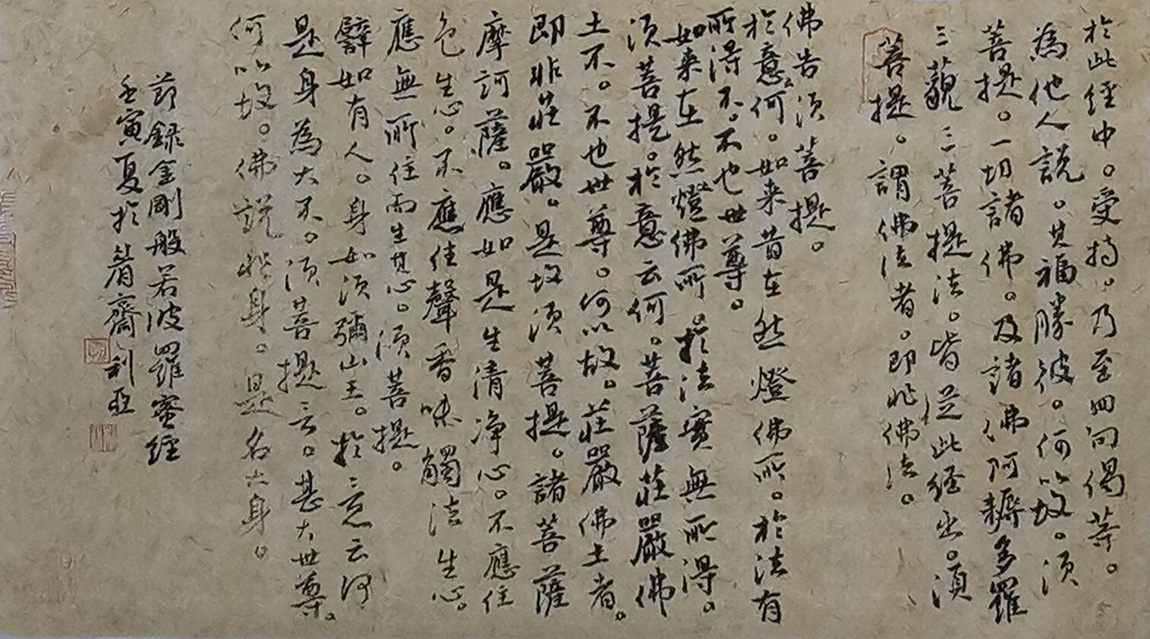 於此經中。受持。乃至四句偈等。
為他人說。其福勝彼。何以故。須
菩提。一切諸佛。及諸佛阿耨多羅
三藐三菩提法。皆從此經出。須
菩提。謂佛法者。即非佛法。
佛告須菩提。
於意云何。如来昔在然燈佛所。於法有
所得不。不也世尊。
如来在然燈佛所。於法實無所得。
須菩提。於意云何。菩薩莊嚴佛
土不。不也世尊。何以故。莊嚴佛土者。
即非莊嚴。是故須菩提。諸菩薩
摩訶薩。應如是生清淨心。不應住
色生心。不應住聲香味觸法生心。
應無所住而生其心。須菩提。
譬如有人。身如須彌山王。於意云何
是身為大不。須菩提言。甚大世尊。
何以故。佛說非身。是名大身。
節錄金剛般若波羅蜜經
壬寅夏於齋利亞